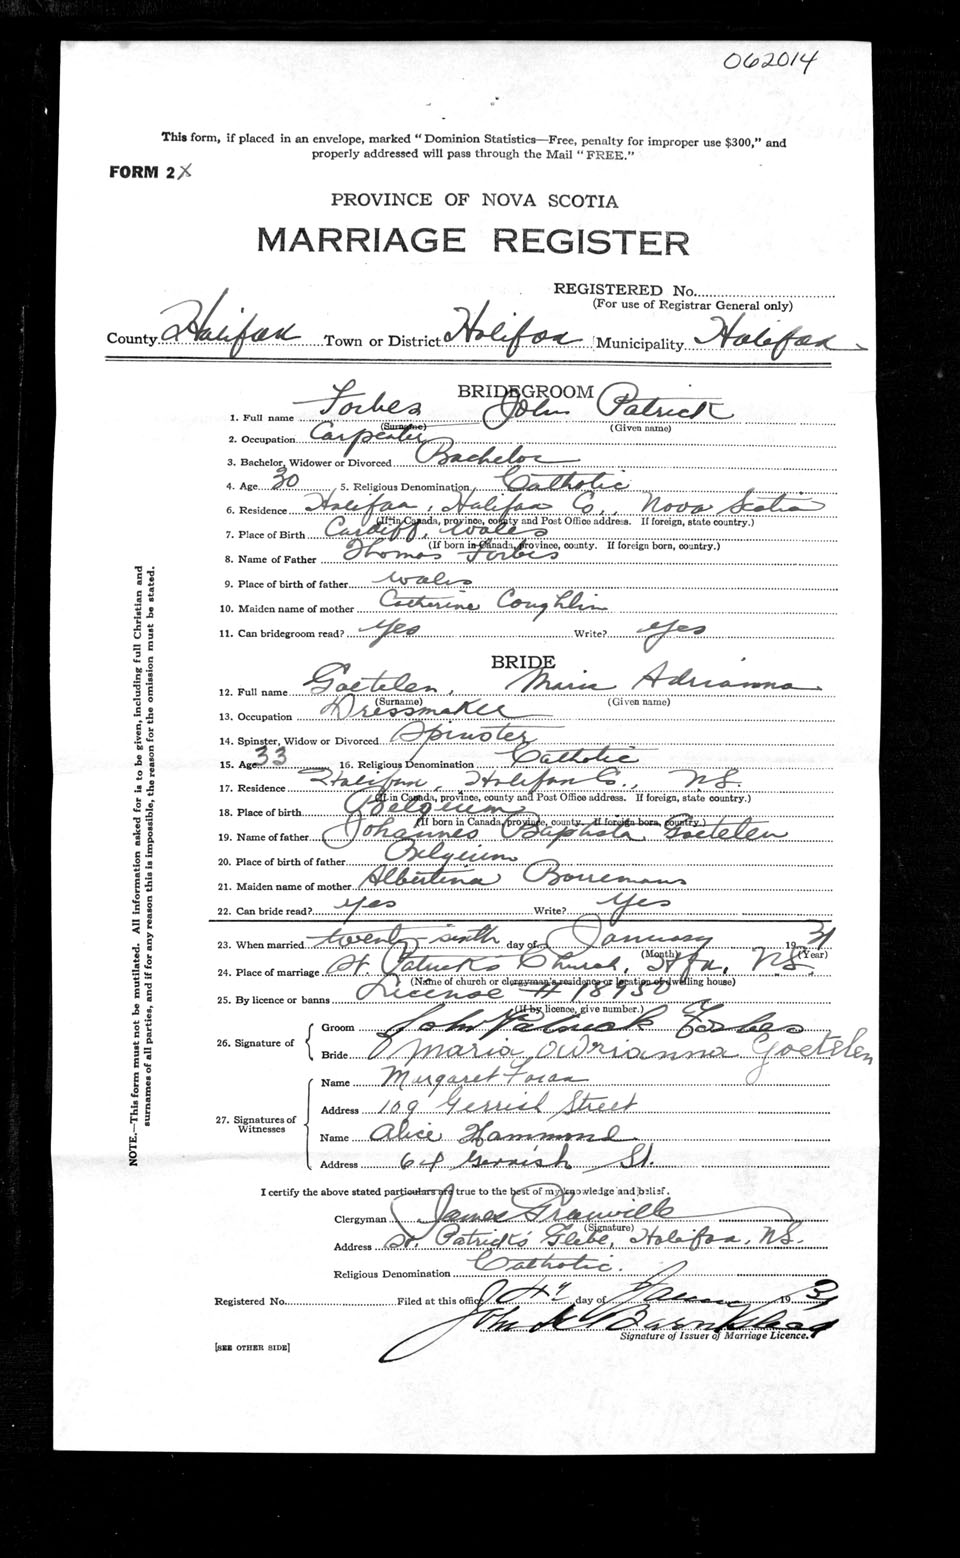 062014
This form, if placed in an envelope, marked "Dominion Statistics—Free, penalty for improper use $300," and
properly addressed will pass through the Mail "FREE."
FORM 2 X
PROVINCE OF NOVA SCOTIA
MARRIAGE REGISTER
REGISTERED No.
(For use of Registrar General only)
County Halifax Town or District Halifax Municipality Halifax
BRIDEGROOM
1. Full name Forbes John Patrick
(Surname) (Given name)
2. Occupation Carpenter
3. Bachelor, Widower or Divorced Bachelor
4. Age 30 5. Religious Denomination Catholic
6. Residence Halifax, Halifax Co., Nova Scotia
(If in Canada, province, county and Post Office address. If foreign, state country.)
7. Place of Birth Cardiff, Wales
(If born in Canada, province, county. If foreign born, country.)
8. Name of Father Thomas Forbes
9. Place of birth of father Wales
10. Maiden name of mother Catherine Coughlin
11. Can bridegroom read? Yes Write? Yes
BRIDE
12. Full name Goetelen, Maria Adrianna
(Surname) (Given name)
13. Occupation Dressmaker
14. Spinster, Widow or Divorced Spinster
15. Age 33 16. Religious Denomination Catholic
17. Residence Halifax, Halifax Co., N.S.
(If in Canada, province, county and Post Office address. If foreign, state country.)
18. Place of birth Belgium
(If born in Canada, province, county. If foreign born, country.)
19. Name of father Johannes Baptista Goetelen
20. Place of birth of father Belgium
21. Maiden name of mother Albertina Borremans
22. Can bride read? Yes Write? Yes
23. When married twenty-sixth day of January 1931
(Month) (Year)
24. Place of marriage St. Patrick's Church, Hfx, N.S.
(Name of church or clergyman's residence or location of dwelling house)
25. By licence or banns License #
(If by licence, give number.)
26. Signature of
Groom John Patrick Forbes
Bride Maria Adrianna Goetelen
27. Signatures of Witnesses
Name Margaret Foran
Address 109 Gerrish Street
Name Alice Hammond
Address 64 Gerrish St.
I certify the above stated particulars are true to the best of my knowledge and belief.
Clergyman James Granville
(Signature)
Address St. Patrick's Glebe, Halifax, N.S.
Religious Denomination Catholic.
Registered No. Filed at this office day of 1931
John Barnstead
Signature of Issuer of Marriage Licence.
[SEE OTHER SIDE]
NOTE.—This form must not be mutilated. All information asked for is to be given, including full Christian and
surnames of all parties, and if for any reason this is impossible, the reason for the omission must be stated.